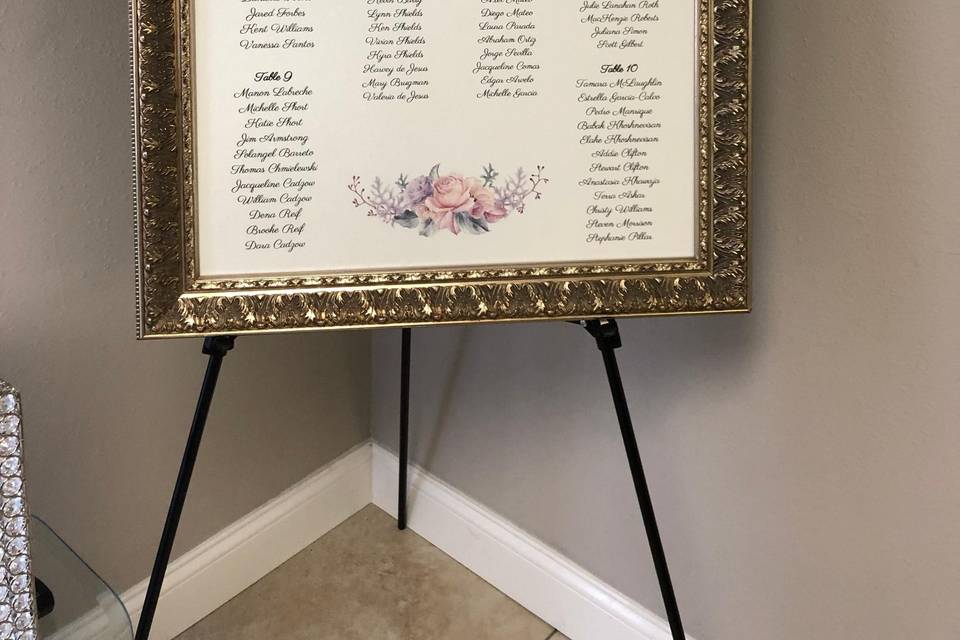 Jared Forbes
Kent Williams
Vanessa Santos
Table 9
Manon Labreche
Michelle Short
Katie Short
Jim Armstrong
Solangel Barreto
Thomas Chmielewski
Jacqueline Cadzow
William Cadzow
Dena Reif
Brooke Reif
Dara Cadzow
Lynn Shields
Ken Shields
Vivian Shields
Kyra Shields
Harvey de Jesus
Mary Brugman
Valeria de Jesus
Diego Mateo
Laura Parada
Abraham Ortiz
Jorge Sevilla
Jacqueline Comas
Edgar Arvelo
Michelle Garcia
Julie Lanahan Roth
MacKenzie Roberts
Juliana Simon
Scott Gilbert
Table 10
Tamara McLaughlin
Estrella Garcia-Calvo
Pedro Manrique
Babak Khoshnevisan
Elahe Khoshnevisan
Addie Clifton
Stewart Clifton
Anastasia Khawaja
Terra Ashar
Christy Williams
Steven Morrison
Stephanie Pillar